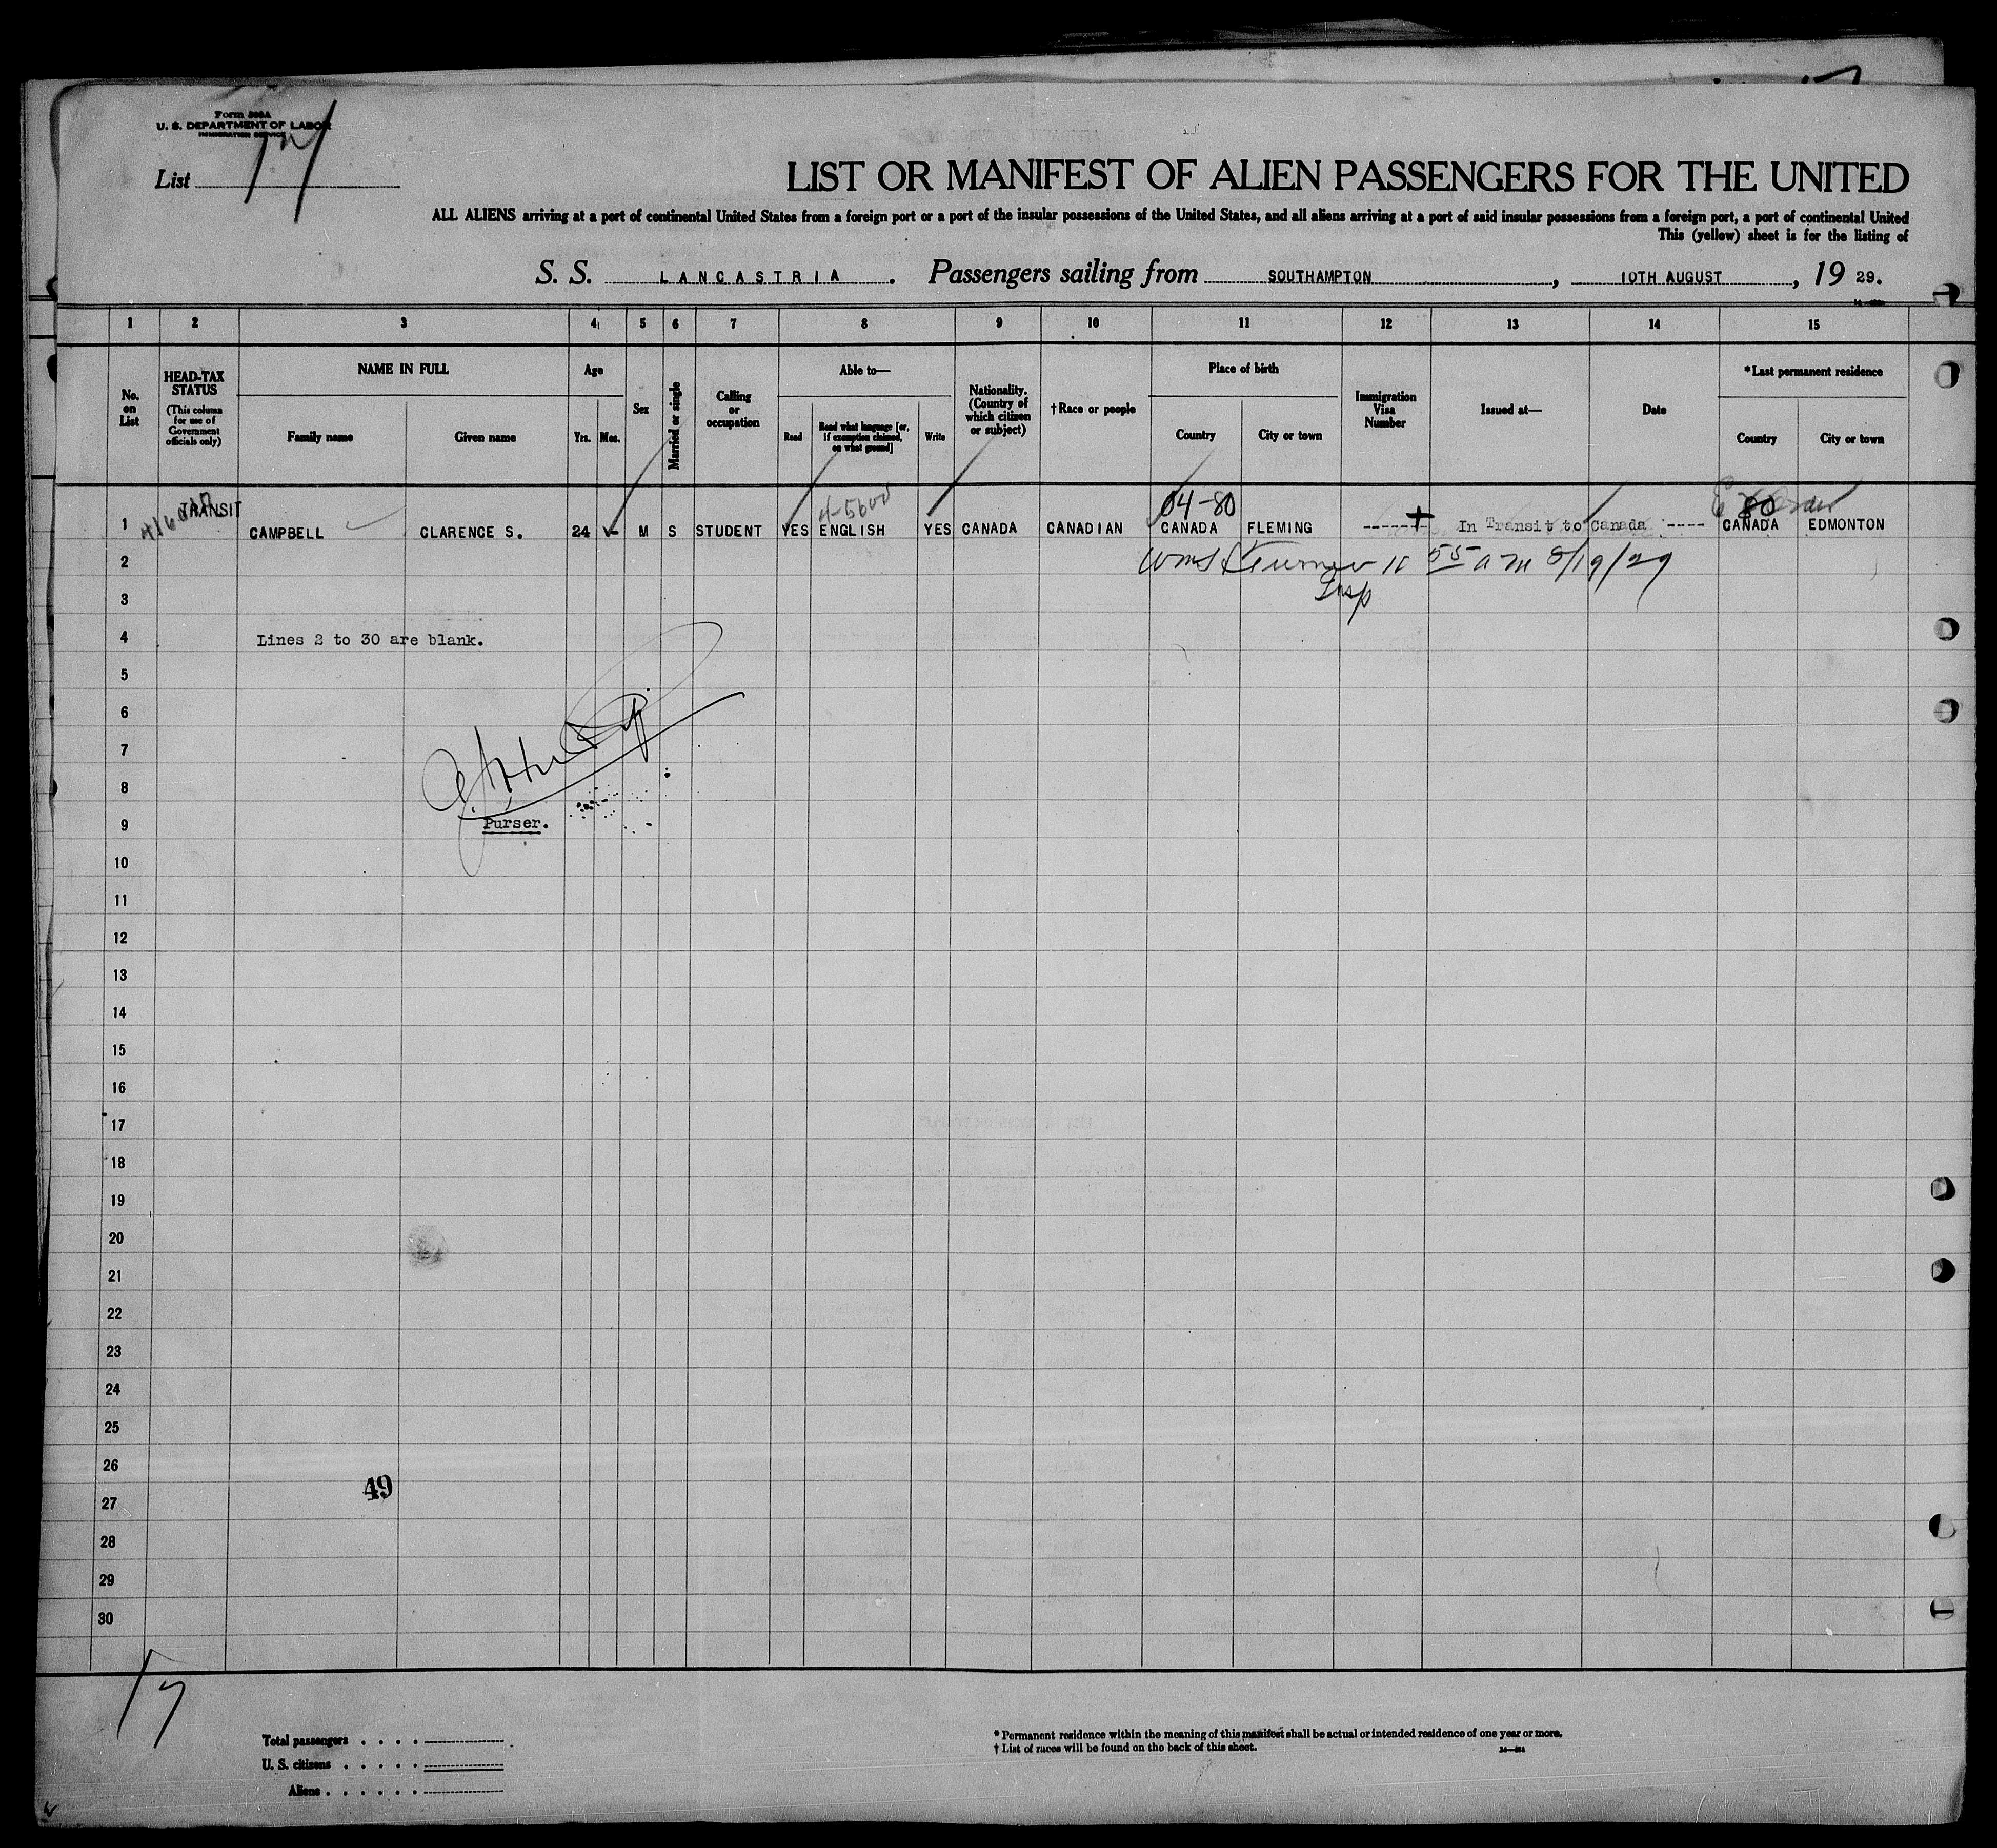 Form 500A
U. S. DEPARTMENT OF LABOR
IMMIGRATION SERVICE
List
LIST OR MANIFEST OF ALIEN PASSENGERS FOR THE UNITED
ALL ALIENS arriving at a port of continental United States from a foreign port or a port of the insular possessions of the United States, and all aliens arriving at a port of said insular possessions from a foreign port, a port of continental United
This (yellow) sheet is for the listing of
S. S. LANCASTRIA. Passengers sailing from SOUTHAMPTON, 10TH AUGUST, 19 29.
1 2 3 4 5 6 7 8 9 10 11 12 13 14 15
No. on List
HEAD-TAX STATUS (This column for use of Government officials only)
NAME IN FULL
Family name Given name
Age
Yrs. Mos.
Sex
Married or single
Calling or occupation
Able to—
Read Read what language [or, if exemption claimed, on what ground] Write
Nationality. (Country of which citizen or subject)
†Race or people
Place of birth
Country City or town
Immigration Visa Number
Issued at—
Date
*Last permanent residence
Country City or town
TRANSIT 04-80 80
1 CAMPBELL CLARENCE S. 24 M S STUDENT YES ENGLISH YES CANADA CANADIAN CANADA FLEMING In Transit to Canada CANADA EDMONTON
2 55 am 8/19/29
3 Insp
4 Lines 2 to 30 are blank.
5
6
7
8
9 Purser.
10
11
12
13
14
15
16
17
18
19
20
21
22
23
24
25
26
49
27
28
29
30
17
Total passengers
U. S. citizens
Aliens
* Permanent residence within the meaning of this manifest shall be actual or intended residence of one year or more.
† List of races will be found on the back of this sheet.